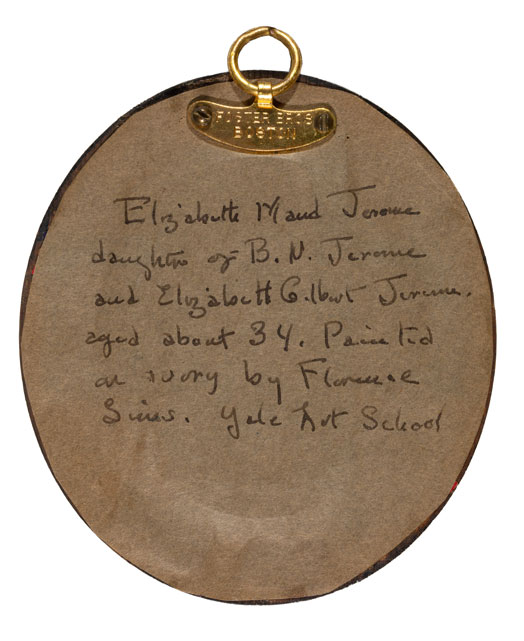 FOSTER BROS
BOSTON
Elizabeth Maud Jerome
daughter of B. N. Jerome
and Elizabeth Gilbert Jerome.
aged about 34. Painted
on ivory by Florence
Sims. Yale Art School